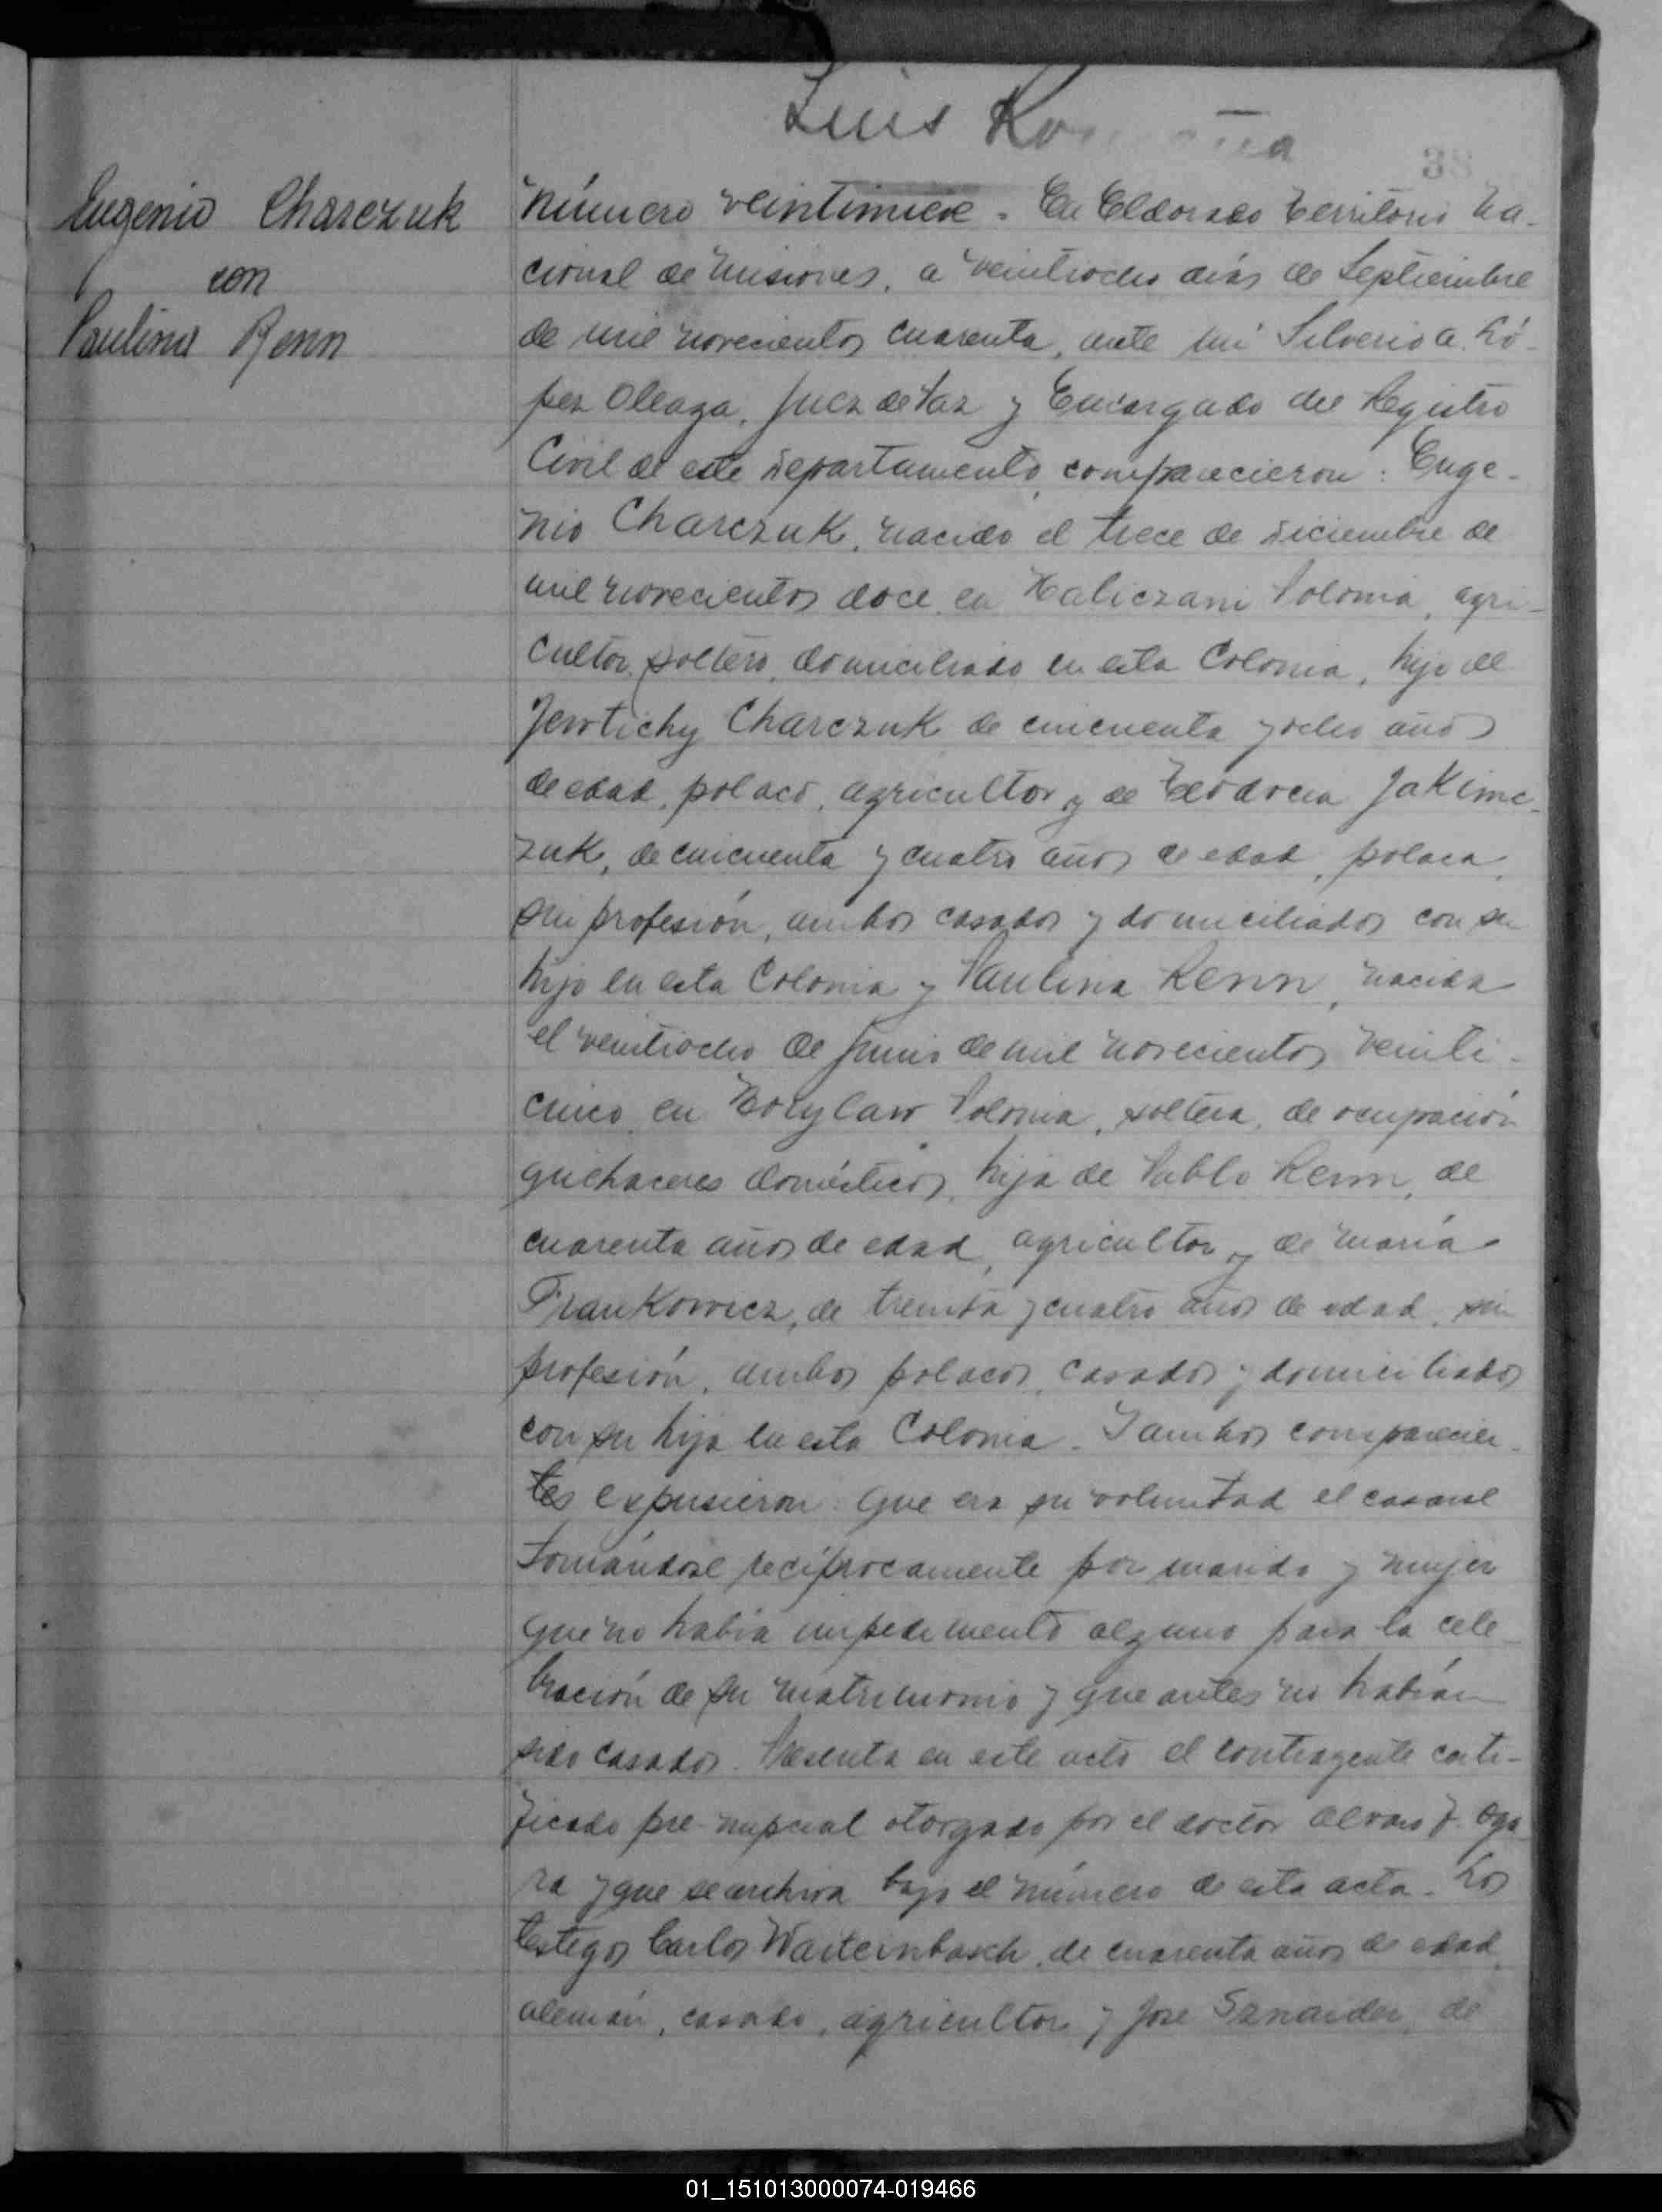 Luis
38
Eugenio Charczuk
con
Paulina Renn
Número veintinueve - En Eldorado Territorio Na-
cional de Misiones, a veintiocho días de Septiembre
de mil novecientos cuarenta, ante mi Silverio A. Ló-
pez Oleaga, Juez de Paz y Encargado del Registro
Civil de este Departamento, comparecieron: Euge-
nio Charczuk, nacido el trece de Diciembre de
mil novecientos doce en Haliczani Polonia, agri-
cultor, soltero, domiciliado en esta Colonia, hijo de
Jewtichy Charczuk de cincuenta y ocho años
de edad, polaco, agricultor y de Teodocia Jakimc-
zuk, de cincuenta y cuatro años de edad, polaca,
sin profesión, ambos casados y domiciliados con su
hijo en esta Colonia y Paulina Renn, nacida
el veintiocho de Junio de mil novecientos veinti-
cinco en Polonia, soltera, de ocupación
quehaceres domésticos, hija de Pablo Renn, de
cuarenta años de edad, agricultor y de María
Frankowicz, de treinta y cuatro años de edad, sin
profesión, ambos polacos, casados y domiciliados
con su hija en esta Colonia. Y ambos comparecien-
tes expusieron: que era su voluntad el casarse
tomándose recíprocamente por marido y mujer
que no había impedimento alguno para la cele-
bración de su matrimonio y que antes no habían
sido casados. Presenta en este acto el contrayente certi-
ficado pre-nupcial otorgado por el doctor Alvaro F.
ra y que se archiva bajo el número de esta acta. Los
testigos Carlos Wasternbasch, de cuarenta años de edad,
alemán, casado, agricultor y José Sznaider, de
01_151013000074-019466